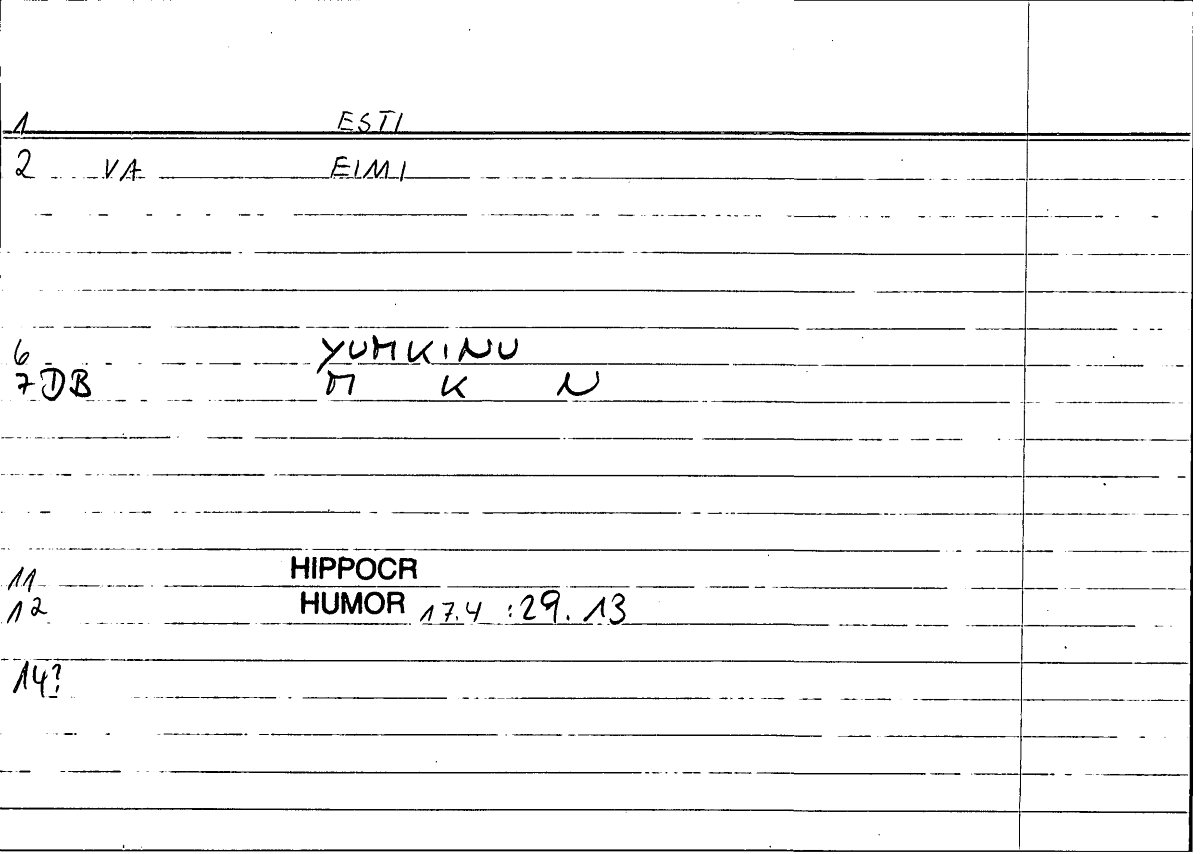 1 ESTI
2 VA EIMI
6 YUMKINU
7 DB M K N
11 HIPPOCR
12 HUMOR 17.4 :29.13
14?